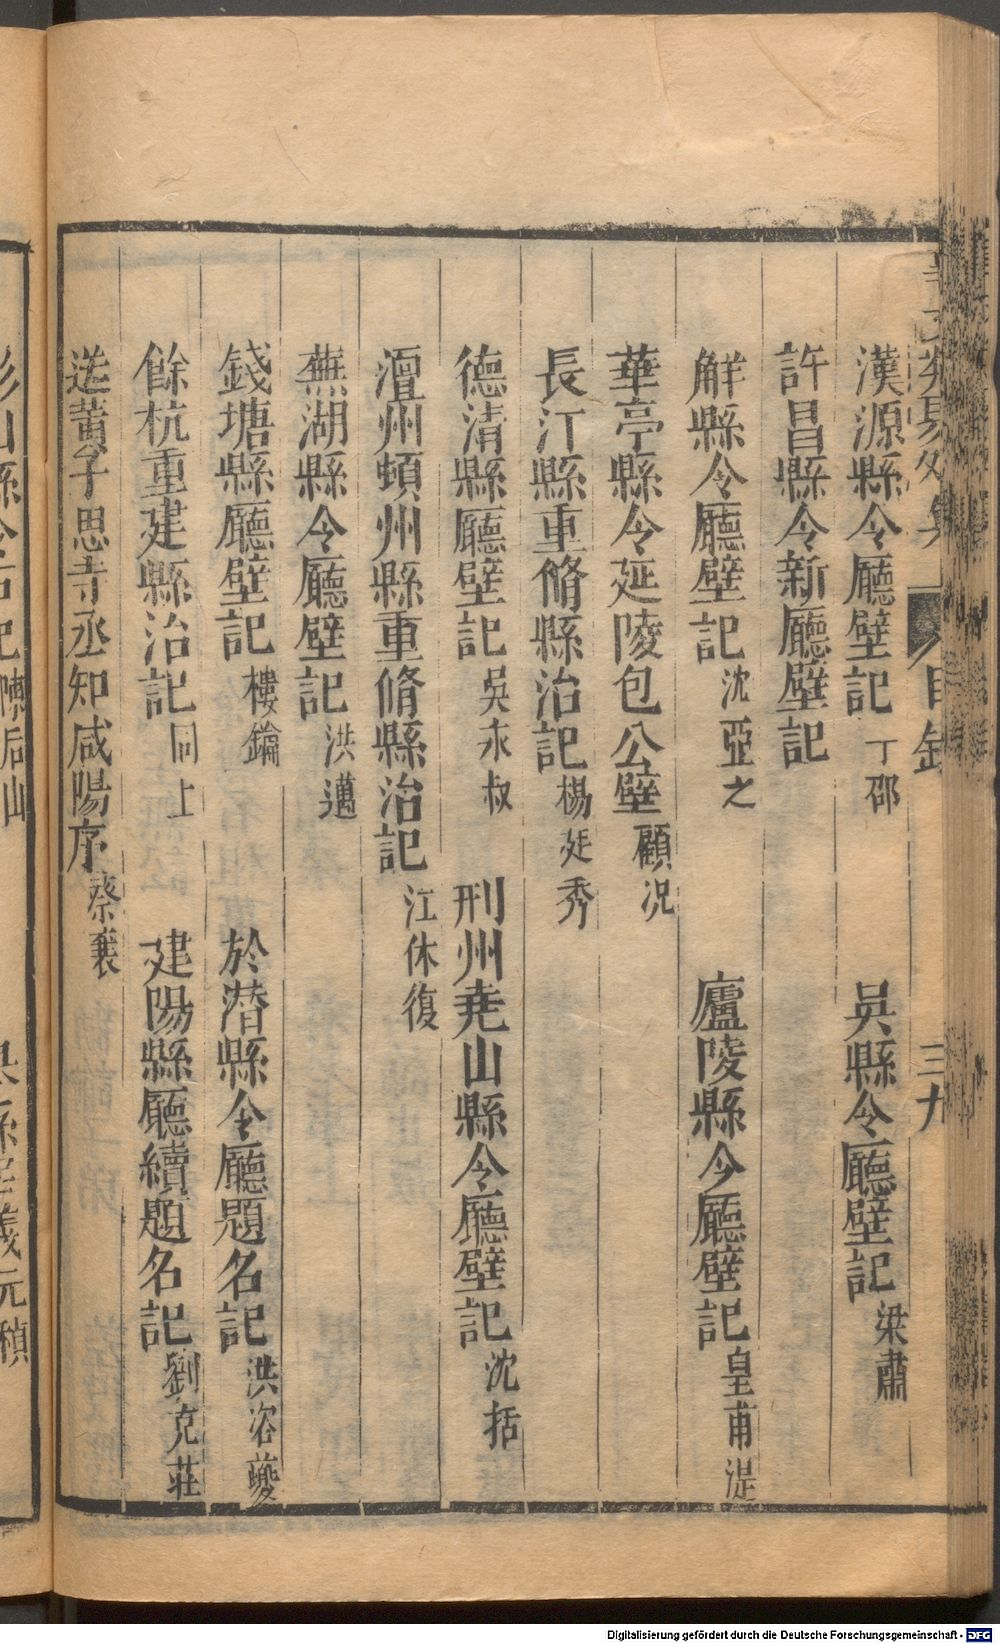 目錄
三九
漢源縣令廳壁記 丁邵 吳縣令廳壁記 梁肅
許昌縣令新廳壁記
解縣令廳壁記 沈亞之 廬陵縣令廳壁記 皇甫湜
華亭縣令延陵包公壁 顧況
長江縣重脩縣治記 楊廷秀
德清縣廳壁記 吳永叔 刑州堯山縣令廳壁記 沈括
澶州頓州縣重脩縣治記 江休復
蕪湖縣令廳壁記 洪邁
錢塘縣廳壁記 樓鑰 於潛縣令廳題名記 洪咨夔
餘杭重建縣治記 同上 建陽縣廳續題名記 劉克莊
送黃子思寺丞知咸陽序 蔡襄
Digitalisierung gefördert durch die Deutsche Forschungsgemeinschaft - DFG